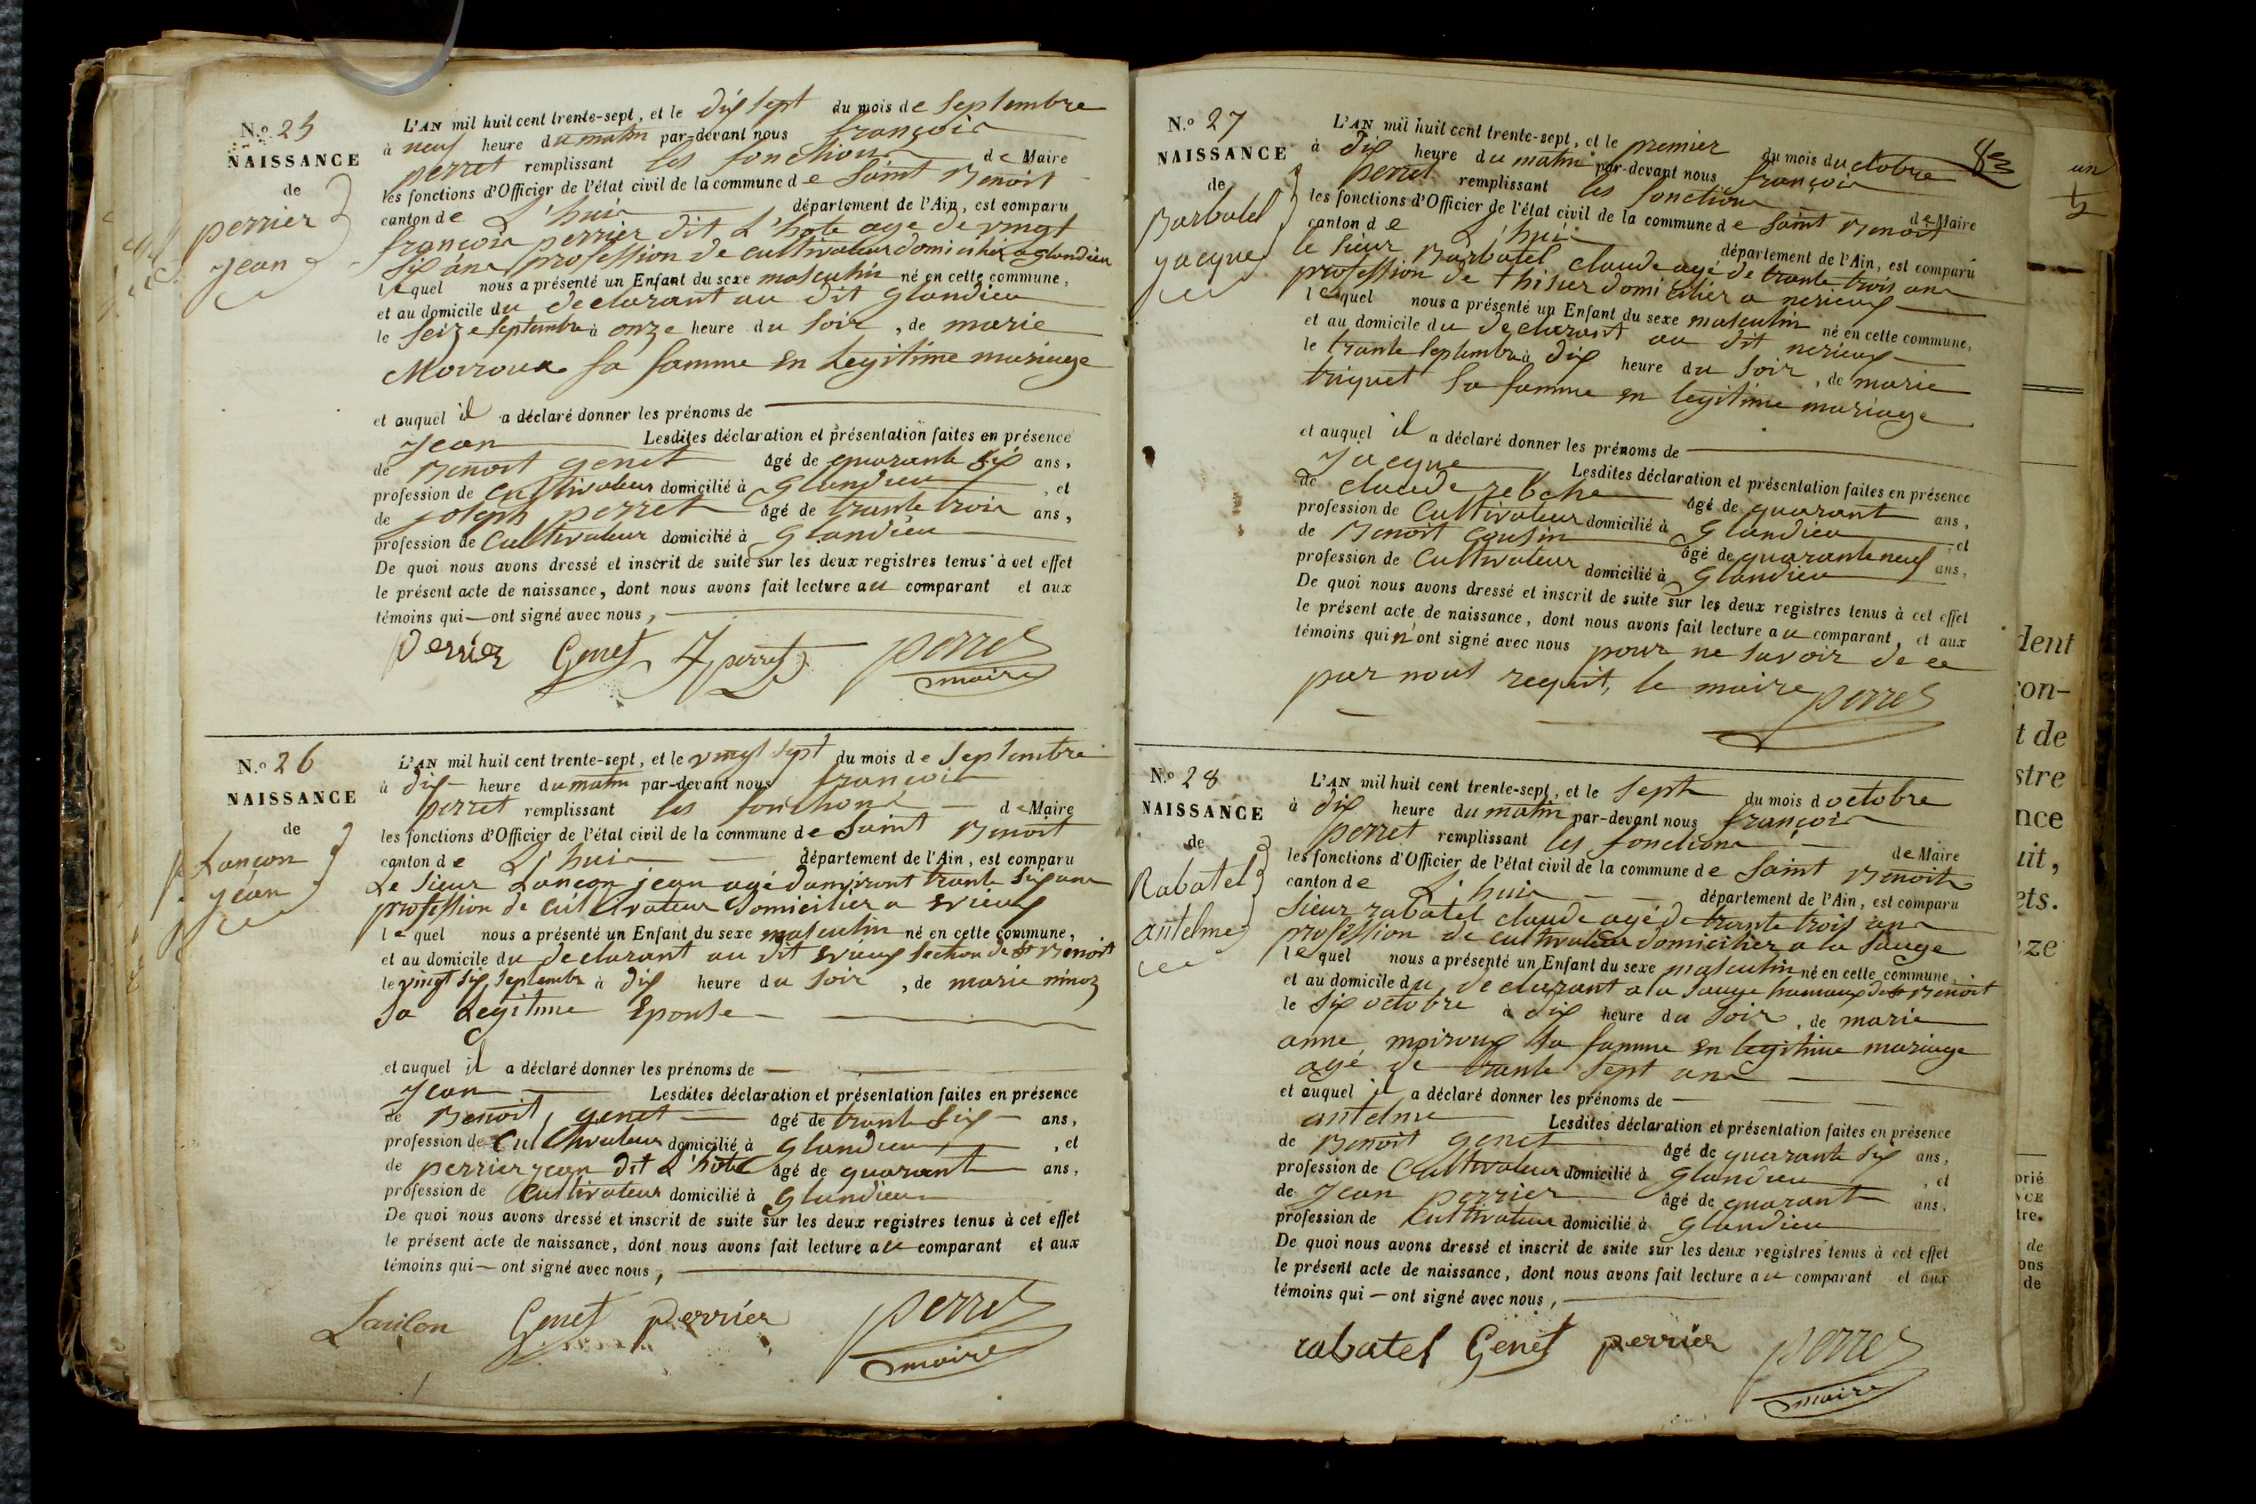 N.o 25
NAISSANCE
de
perrier
jean
L'AN mil huit cent trente-sept, et le dix sept du mois de Septembre
à neuf heure du matin par-devant nous françois
perret remplissant les fonctions de Maire
les fonctions d'Officier de l'état civil de la commune de Saint Benoit
canton de L'huis département de l'Ain, est comparu
françois perrier dit L'hote age de vingt
six ans profession de cultivateur domicilier a glandieu
lequel nous a présenté un Enfant du sexe masculin né en cette commune,
et au domicile du declarant au dit glandieu
le Seize Septembre à onze heure du Soir, de marie
Moiroux sa famme en Legitime mariage
et auquel il a déclaré donner les prénoms de
Jean Lesdites déclaration et présentation faites en présence
de Benoit genet âgé de quarante six ans,
profession de cultivateur domicilié à Glandieu, et
de joseph perret âgé de trante trois ans,
profession de Cultivateur domicilié à Glandieu
De quoi nous avons dressé et inscrit de suite sur les deux registres tenus à cet effet
le présent acte de naissance, dont nous avons fait lecture au comparant et aux
témoins qui — ont signé avec nous,
perrier Genet J perret perret
maire
N.o 26
NAISSANCE
de
Lançon
jean
L'AN mil huit cent trente-sept, et le vingt Sept du mois de Septembre
à dix heure du matin par-devant nous françois
perret remplissant les fonctions de Maire
les fonctions d'Officier de l'état civil de la commune de Saint Benoit
canton de L'huis département de l'Ain, est comparu
Le Sieur Lançon jean agé danviront trante six ans
profession de cultivateur domicilier a Evieux
lequel nous a présenté un Enfant du sexe masculin né en cette commune,
et au domicile du declarant au dit Evieux section de St Benoit
le vingt six Septembre à dix heure du Soir, de marie ninoz
Sa Legitime Epouse
et auquel il a déclaré donner les prénoms de
Jean Lesdites déclaration et présentation faites en présence
de Benoit genet âgé de trante Six ans,
profession de Cultivateur domicilié à Glandieu, et
de perrier jean dit L'hote âgé de quarant ans,
profession de Cultivateur domicilié à Glandieu
De quoi nous avons dressé et inscrit de suite sur les deux registres tenus à cet effet
le présent acte de naissance, dont nous avons fait lecture au comparant et aux
témoins qui — ont signé avec nous,
Genet perrier perret
maire
N.o 27
NAISSANCE
de
Barbatel
jacque
L'AN mil huit cent trente-sept, et le premier du mois d'uctobre
à dix heure du matin par-devant nous françois
perret remplissant les fonctions de Maire
les fonctions d'Officier de l'état civil de la commune de Saint Benoit
canton de L'huis département de l'Ain, est comparu
le Sieur Barbatel claude agé de trante trois ans
profession de thisier domicilier a nerieux
lequel nous a présenté un Enfant du sexe masculin né en cette commune,
et au domicile du declarant au dit nerieux
le trante Septembre à dix heure du Soir, de marie
triquet Sa famme en legitime mariage
et auquel il a déclaré donner les prénoms de
Jacque Lesdites déclaration et présentation faites en présence
de claude âgé de quarant ans,
profession de Cultivateur domicilié à Glandieu, et
de Benoit Cousin âgé de quarante neuf ans,
profession de Cultivateur domicilié à Glandieu
De quoi nous avons dressé et inscrit de suite sur les deux registres tenus à cet effet
le présent acte de naissance, dont nous avons fait lecture au comparant, et aux
témoins qui n'ont signé avec nous pour ne savoir de ce
par nous requit, le maire perret
N.o 28
NAISSANCE
de
Rabatel
antelme
L'AN mil huit cent trente-sept, et le Sept du mois doctobre
à dix heure du matin par-devant nous françois
perret remplissant les fonctions de Maire
les fonctions d'Officier de l'état civil de la commune de Saint Benoit
canton de L'huis département de l'Ain, est comparu
Sieur rabatel claude agé de trante trois ans
profession de cultivateur domicilier a la Sauge
lequel nous a présenté un Enfant du sexe masculin né en cette commune
et au domicile du declarant a la Sauge hamaux de St Benoit
le Six octobre à dix heure du Soir, de marie
anne moiroux Sa famme en legitime mariage
agé de trante Sept ans
et auquel il a déclaré donner les prénoms de
antelme Lesdites déclaration et présentation faites en présence
de Benoit genet âgé de quarante six ans,
profession de Cultivateur domicilié à Glandieu, et
de Jean perrier âgé de quarant ans,
profession de Cultivateur domicilié à Glandieu
De quoi nous avons dressé et inscrit de suite sur les deux registres tenus à cet effet
le présent acte de naissance, dont nous avons fait lecture au comparant et aux
témoins qui — ont signé avec nous,
rabatel Genet perrier perret
maire
un
dent
con-
t de
stre
nce
uit,
ets.
ze
de
ons
de